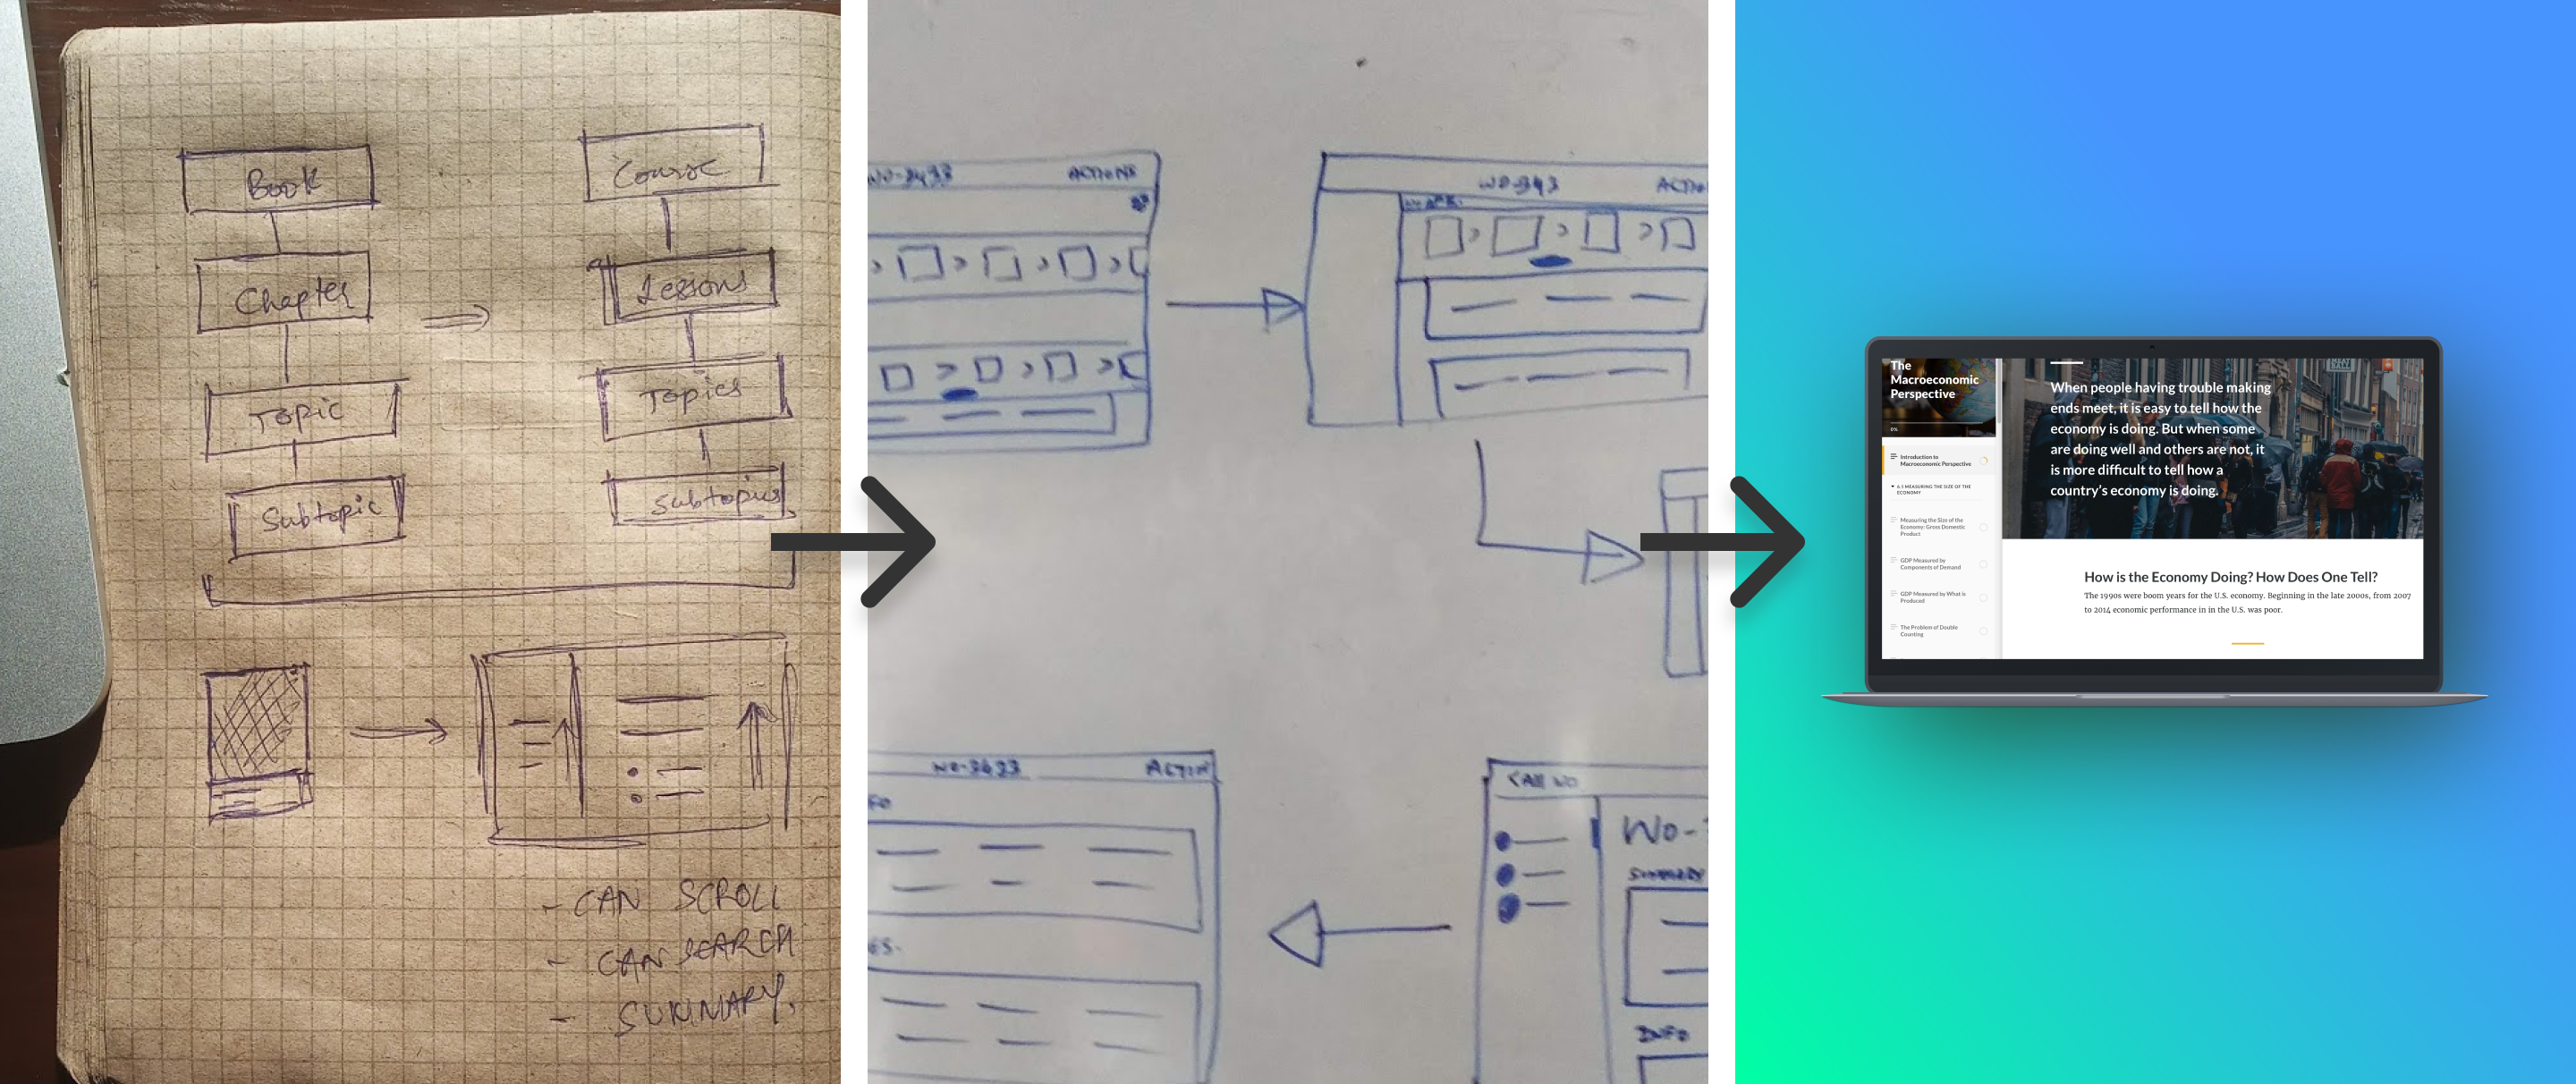 Book
Chapter
Topic
Subtopic
Course
Lessons
Topics
Subtopics
- CAN SCROLL
- CAN SEARCH
- SUMMARY.
WO-3433
ACTIONS
WO-343
ACTIO
WO-3433
ACTION
FO
ES.
ALL WO
WO-
SUMMARY
INFO
The
Macroeconomic
Perspective
0%
Introduction to
Macroeconomic Perspective
6.1 MEASURING THE SIZE OF THE
ECONOMY
Measuring the Size of the
Economy: Gross Domestic
Product
GDP Measured by
Components of Demand
GDP Measured by What is
Produced
The Problem of Double
Counting
When people having trouble making
ends meet, it is easy to tell how the
economy is doing. But when some
are doing well and others are not, it
is more difficult to tell how a
country's economy is doing.
How is the Economy Doing? How Does One Tell?
The 1990s were boom years for the U.S. economy. Beginning in the late 2000s, from 2007
to 2014 economic performance in in the U.S. was poor.